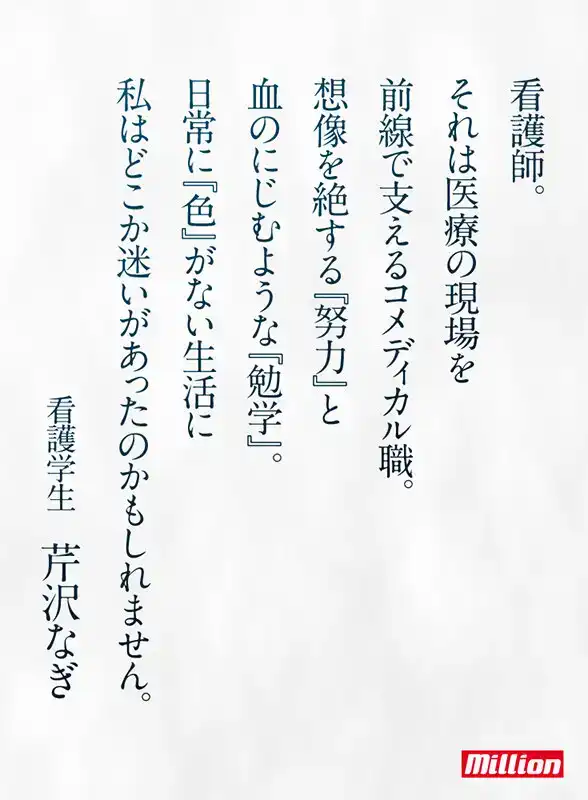 看護師。
それは医療の現場を
前線で支えるコメディカル職。
想像を絶する『努力』と
血のにじむような『勉学』。
日常に『色』がない生活に
私はどこか迷いがあったのかもしれません。
看護学生 芹沢なぎ
Million